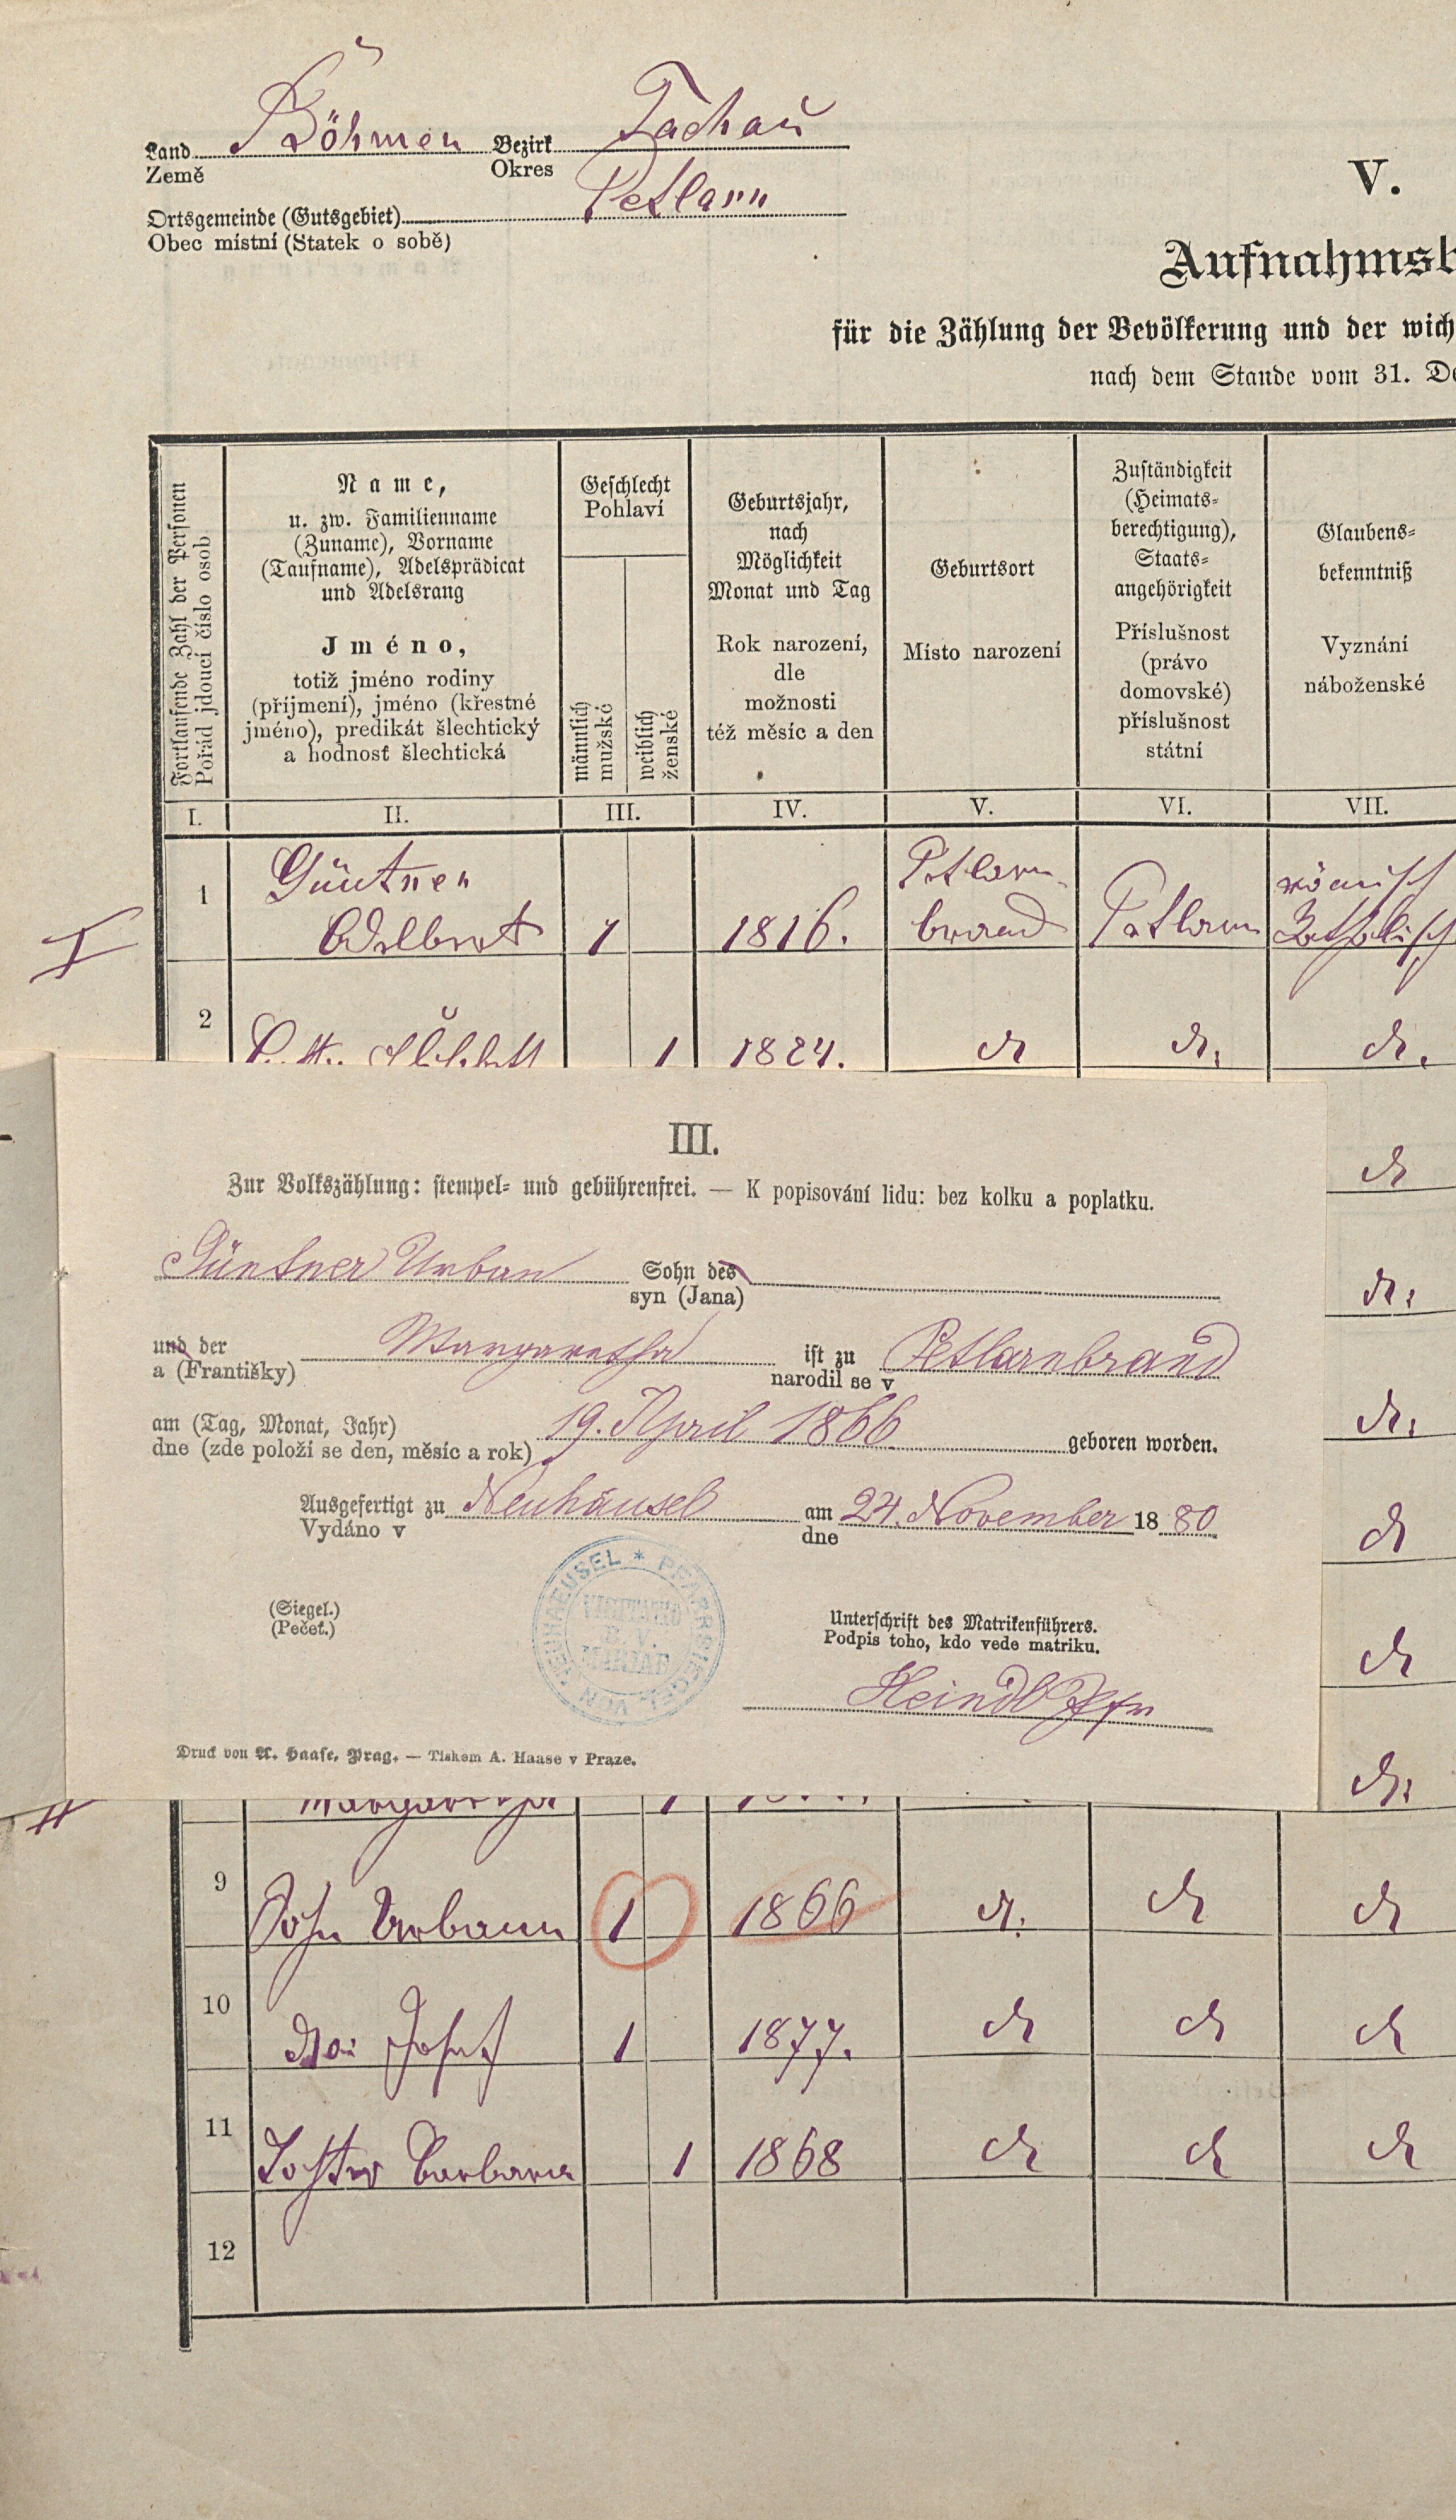 Land Böhmen Bezirk Tachau
Země Okres
Ortsgemeinde (Gutsgebiet) Petlarn
Obec místní (Statek o sobě)
V.
Aufnahmsb
für die Zählung der Bevölkerung und der wich
nach dem Stande vom 31. De
Fortlaufende Zahl der Personen
Pořád jdoucí číslo osob
Name,
u. zw. Familienname
(Zuname), Vorname
(Taufname), Adelsprädicat
und Adelsrang
Jméno,
totiž jméno rodiny
(příjmení), jméno (křestné
jméno), predikát šlechtický
a hodnosť šlechtická
Geschlecht
Pohlaví
männlich
mužské
weiblich
ženské
Geburtsjahr,
nach
Möglichkeit
Monat und Tag
Rok narození,
dle
možnosti
též měsíc a den
Geburtsort
Místo narození
Zuständigkeit
(Heimats-
berechtigung),
Staats-
angehörigkeit
Příslušnost
(právo
domovské)
příslušnost
státní
Glaubens-
bekenntniß
Vyznání
náboženské
I. II. III. IV. V. VI. VII.
1 Güntner Petlarn- römisch
Adelbert 1 1816. brand Petlarn Katholisch
2 1 1824. dt dt. dt.
dt
dt.
dt.
dt
dt
dt.
III.
Zur Volkszählung: stempel- und gebührenfrei. — K popisování lidu: bez kolku a poplatku.
Güntner Urban Sohn des
syn (Jana)
und der Margaretha ist zu Petlarnbrand
a (Františky) narodil se v
am (Tag, Monat, Jahr) 19. April 1866 geboren worden.
dne (zde položí se den, měsíc a rok)
Ausgefertigt zu Neuhäusel am 24. November 1880
Vydáno v dne
(Siegel.)
(Pečeť.)
PFARRSIEGEL VON NEUHAEUSEL
B. V.
MARIAE
Unterschrift des Matrikenführers.
Podpis toho, kdo vede matriku.
Heindl Pfr
Druck von A. Haase, Prag. — Tiskem A. Haase v Praze.
Margaretha 1
9 Sohn Urbann 1 1866 dt. dt dt
10 Josef 1 1877. dt dt dt
11 Tochter Barbara 1 1868 dt dt dt
12